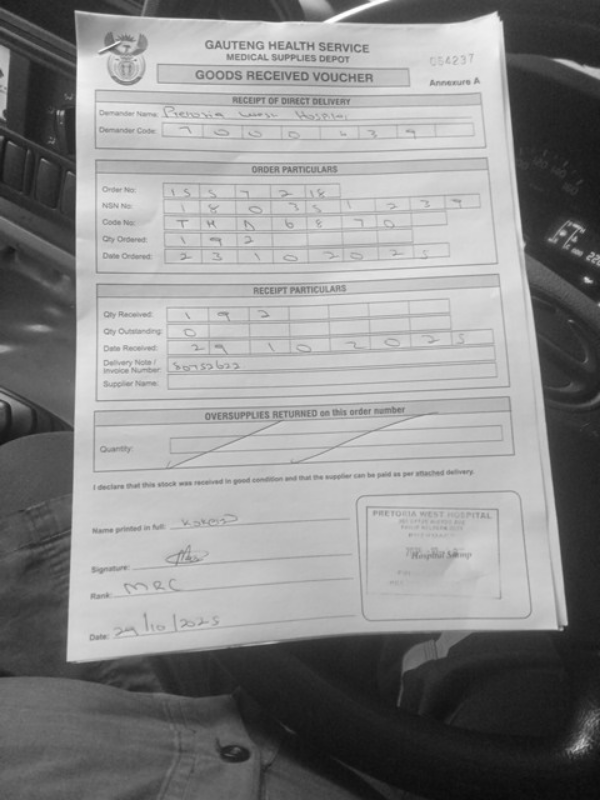 GAUTENG HEALTH SERVICE
MEDICAL SUPPLIES DEPOT
064237
GOODS RECEIVED VOUCHER
Annexure A
RECEIPT OF DIRECT DELIVERY
Demander Name: Pretoria West Hospital
Demander Code: 7 0 0 0 6 3 9
ORDER PARTICULARS
Order No: 1 5 5 7 2 18
NSN No: 1 8 0 3 5 1 2 3 9
Code No: T H A 6 8 7 0
Qty Ordered: 1 9 2
Date Ordered: 2 3 1 0 2 0 2 5
RECEIPT PARTICULARS
Qty Received: 1 9 2
Qty Outstanding: 0
Date Received: 29 1 0 2 0 2 5
Delivery Note / Invoice Number: 80752622
Supplier Name:
OVERSUPPLIES RETURNED on this order number
Quantity:
I declare that this stock was received in good condition and that the supplier can be paid as per attached delivery.
Name printed in full:
Signature:
Rank: MRC
Date: 29/10/2025
PRETORIA WEST HOSPITAL
Hospital Stamp